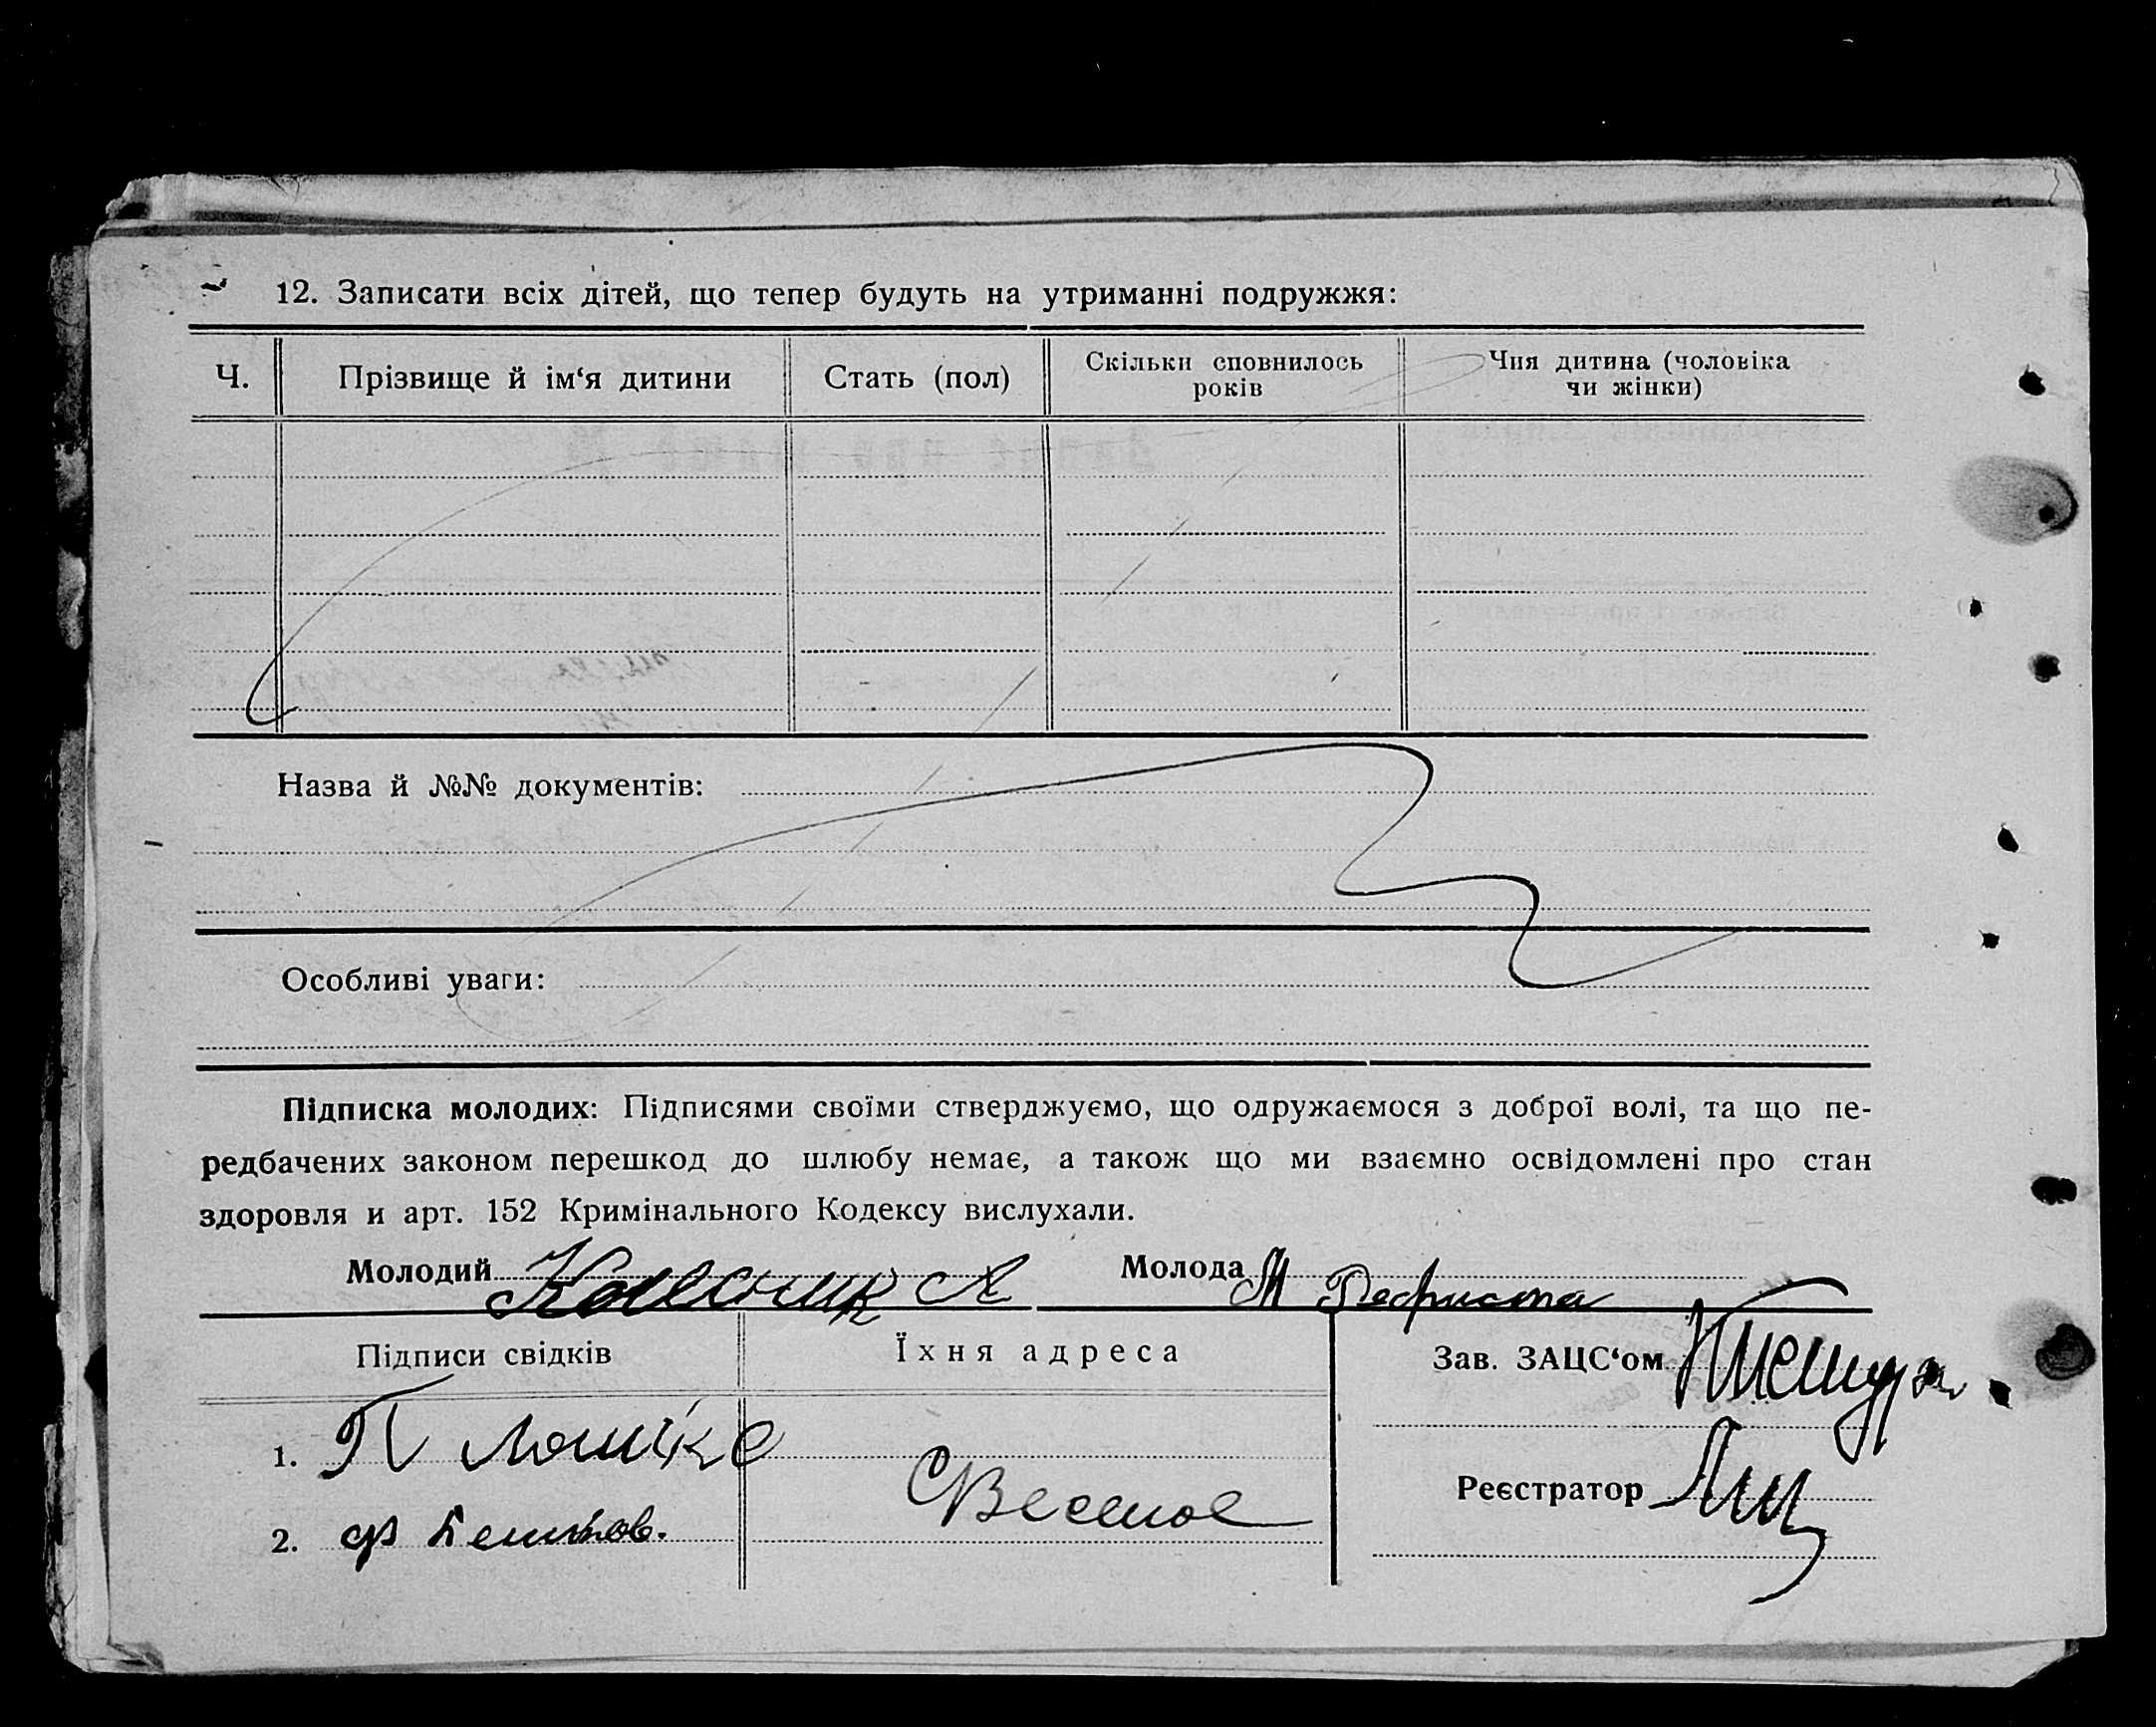 12. Записати всіх дітей, що тепер будуть на утриманні подружжя:
Ч.
Прізвище й ім‘я дитини
Стать (пол)
Скільки сповнилось
років
Чия дитина (чоловіка
чи жінки)
Назва й №№ документів:
Особливі уваги:
Підписка молодих: Підписями своїми стверджуємо, що одружаємося з доброї волі, та що пе-
редбачених законом перешкод до шлюбу немає, а також що ми взаємно освідомлені про стан
здоровля и арт. 152 Кримінального Кодексу вислухали.
Молодий Колесник А
Молода М
Підписи свідків
Їхня адреса
Зав. ЗАЦС‘ом
1. П
Реєстратор
2.